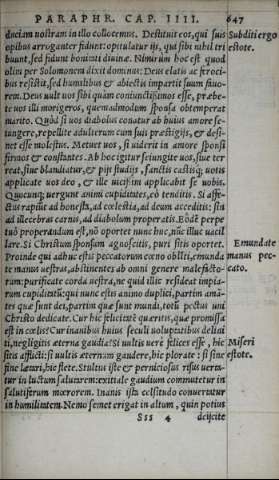 PARAPHR. CAP. IIII. 647
duciam nostram in illo collocemus. Destituit eos, qui suis
opibus arroganter fidunt: opitulatur ijs, qui sibi nihil tri
buunt, sed fidunt bonitati diuinæ. Nimirum hoc est quod
olim per Solomonem dixit dominus: Deus elatis ac feroci
bus resistit, sed humilibus & abiectis impartit suum fauo-
rem. Deus uult uos sibi quàm coniunctissimos esse, præbe-
te uos illi morigeros, quemadmodum sponsa obtemperat
marito. Quòd si uos diabolus conatur ab huius amore se-
iungere, repellite adulterum cum suis præstigijs, & desi-
net esse molestus. Metuet uos, si uiderit in amore sponsi
firmos & constantes. Ab hoc igitur seiungite uos, siue ter
reat, siue blandiatur, & pijs studijs, sanctis castisq́; uotis
applicate uos deo, & ille uicissim applicabit se uobis.
Quocunq; uergunt animi cupiditates, eò tenditis. Si affe-
ctus rapiūt ad honesta, ad cœlestia, ad deum acceditis: sin
ad illecebras carnis, ad diabolum properatis. Eodē perpe
tuò properandum est, nō oportet nunc huc, nūc illuc uacil
lare. Si Christum sponsum agnoscitis, puri sitis oportet.
Proinde qui adhuc estis peccatorum cœno obliti, emunda
te manus uestras, abstinentes ab omni genere malefacto-
rum: purificate corda uestra, ne quid illic resideat impia-
rum cupiditatū: qui nunc estis animo duplici, partim amā-
tes quæ sunt dei, partim quæ sunt mundi, toti pectus uni
Christo dedicate. Cur hic felicitatē quæritis, quæ promissa
est in cœlis? Cur inanibus huius seculi uoluptatibus delini
ti, negligitis æterna gaudia? Si uultis uerè felices esse, hic
sitis afflicti: si uultis æternùm gaudere, hic plorate: si sine
fine lætari, hic flete. Stultus iste & perniciosus risus uerta-
tur in luctum salutarem: exitiale gaudium commutetur in
salutiferum mœrorem. Inanis ista celsitudo conuertatur
in humilitatem. Nemo semet erigat in altum, quin potius
Sss 4 deijcite
Subditi ergo
estote.
Emundate
manus pec-
cato.
Miseri
estote.